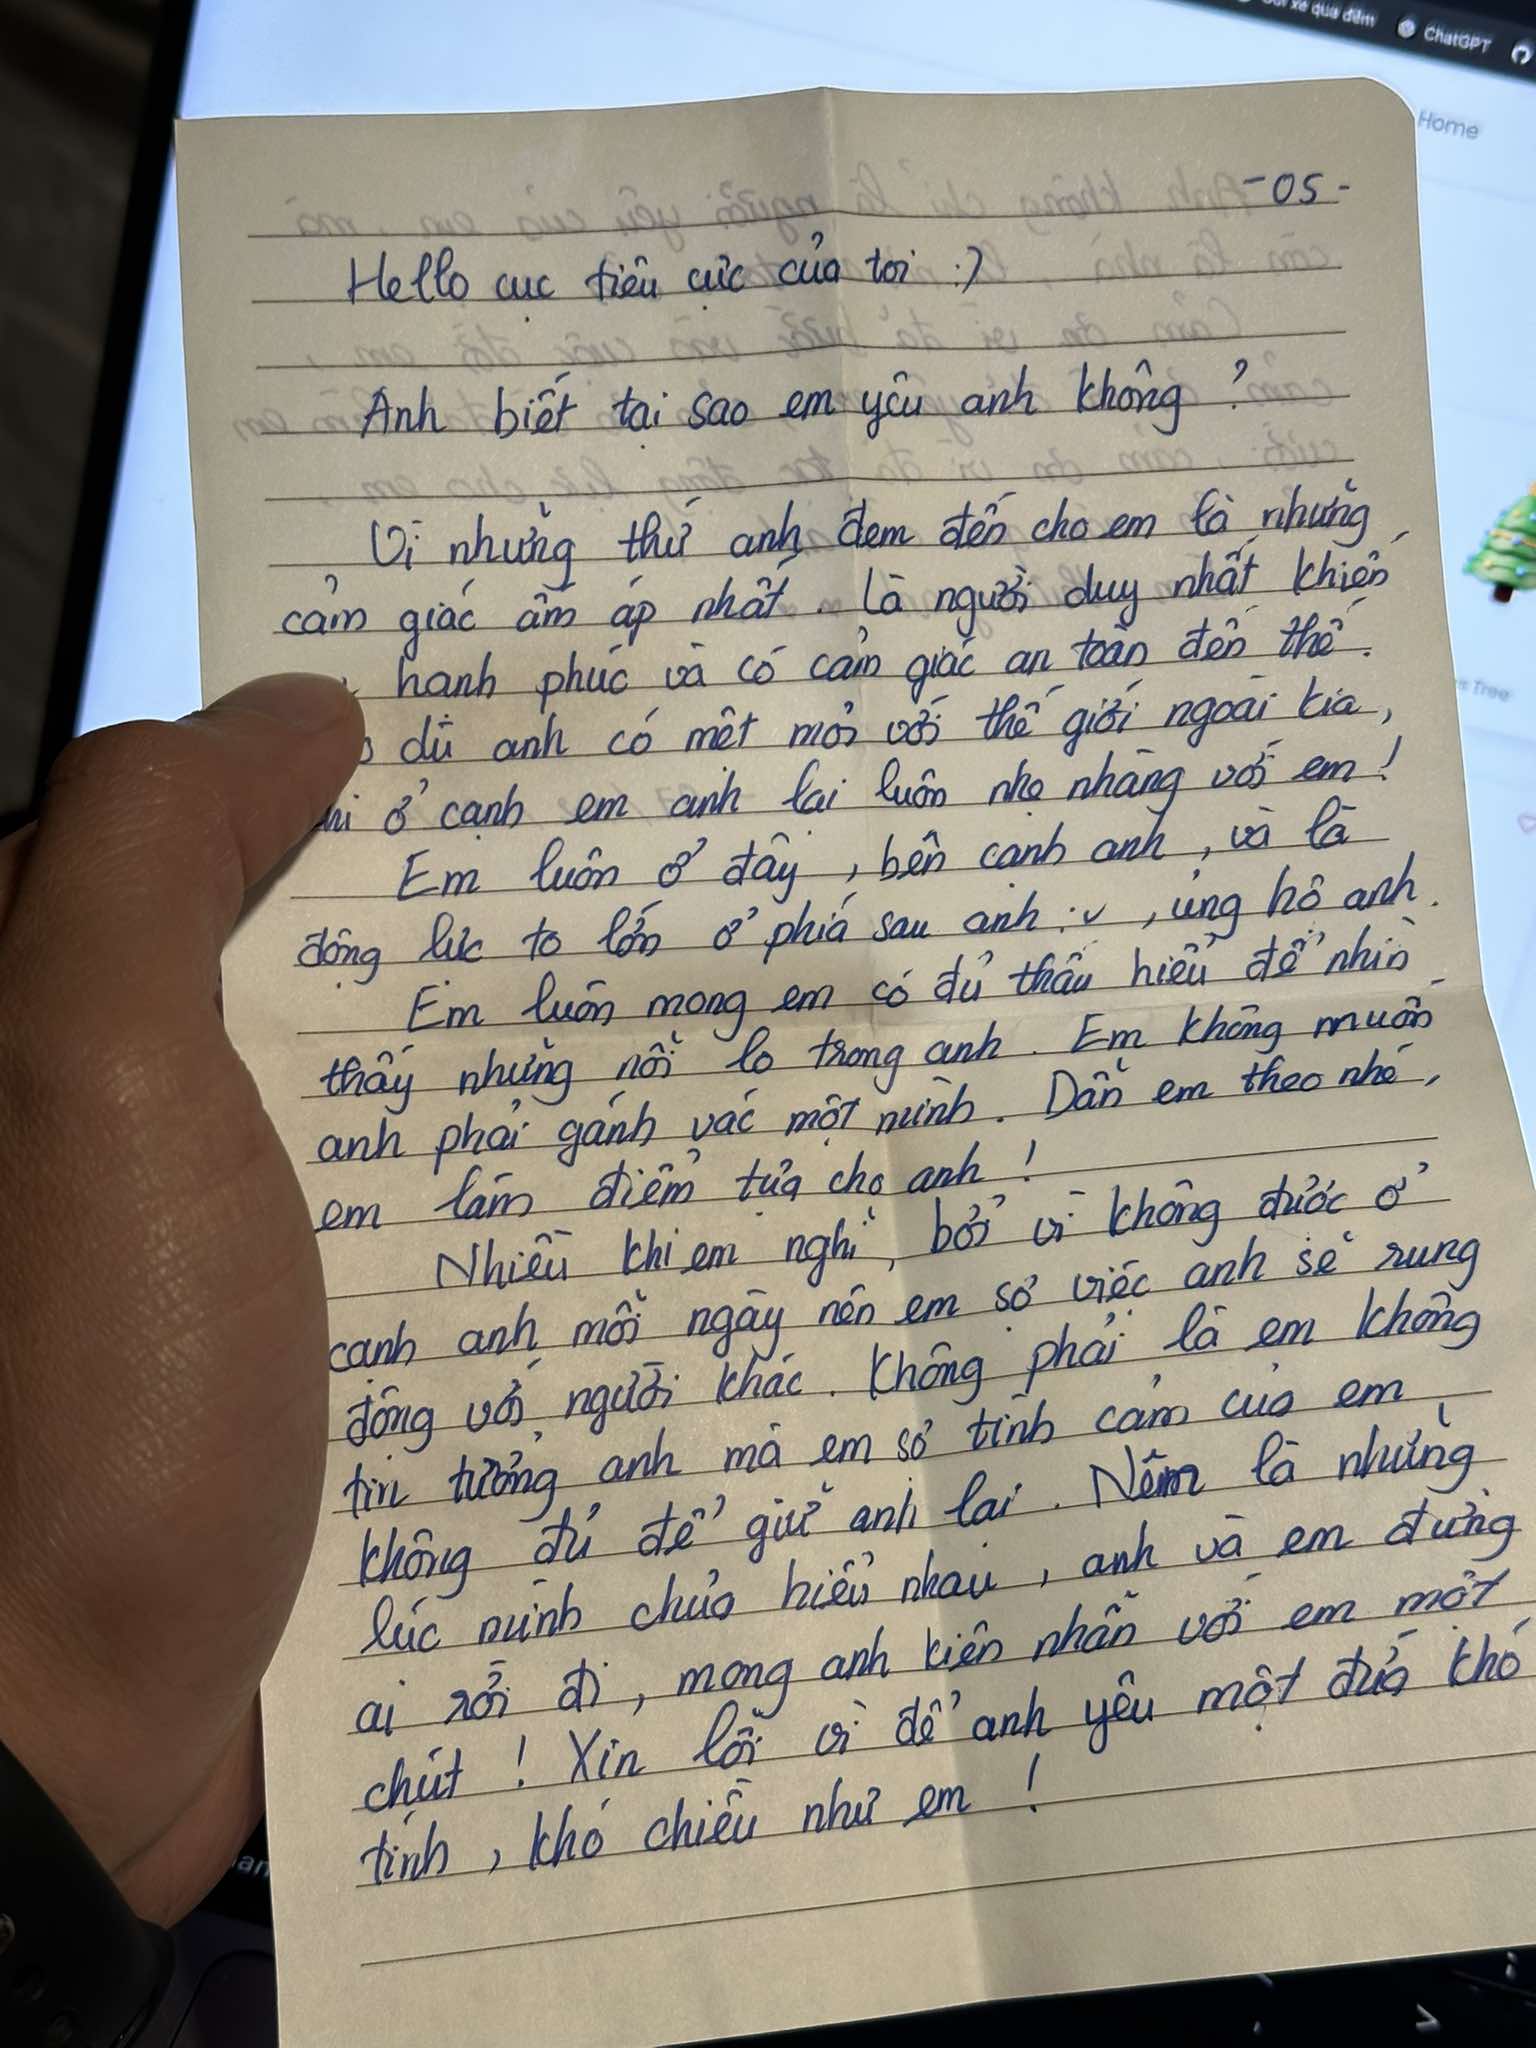 Gửi xe qua đêm
ChatGPT
Home
-05-
Hello cục tiêu cực của tôi :)
Anh biết tại sao em yêu anh không ?
Vì những thứ anh đem đến cho em là những
cảm giác ấm áp nhất. Là người duy nhất khiến
hạnh phúc và có cảm giác an toàn đến thế.
dù anh có mệt mỏi với thế giới ngoài kia,
khi ở cạnh em anh lại luôn nhẹ nhàng với em!
Em luôn ở đây, bên cạnh anh, và là
động lực to lớn ở phía sau anh :v , ủng hộ anh.
Em luôn mong em có đủ thấu hiểu để nhìn
thấy những nỗi lo trong anh. Em không muốn
anh phải gánh vác một mình. Dẫn em theo nhé,
em làm điểm tựa cho anh !
Nhiều khi em nghĩ, bởi vì không được ở
cạnh anh mỗi ngày nên em sợ việc anh sẽ rung
động với người khác. Không phải là em không
tin tưởng anh mà em sợ tình cảm của em
không đủ để giữ anh lại. Nếm là những
lúc mình chưa hiểu nhau, anh và em đừng
ai rời đi, mong anh kiên nhẫn với em một
chút ! Xin lỗi vì để anh yêu một đứa khó
tính, khó chiều như em !
s Tree